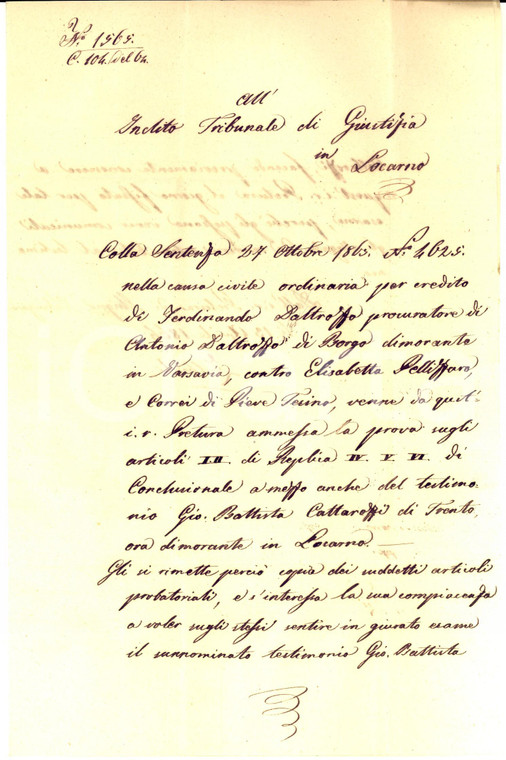 N.º 1565.
C. 104. del 64.
All'
Inclito Tribunale di Giustizia
in
Locarno
Colla Sentenza 27 Ottobre 1863. N.º 4625.
nella causa civile ordinaria per credito
di Ferdinando Daltrozzo procuratore di
Antonio Daltrozzo di Borgo dimorante
in Varsavia, contro Elisabetta Pellizzaro,
e Correi di Pieve Tesino, venne da quest'
i. r. Pretura ammessa la prova sugli
articoli I.II. di Replica IV. V. VI. di
Conclusionale a mezzo anche del testimo-
nio Gio. Battista Cattarozzi di Trento,
ora dimorante in Locarno.—
Gli si rimette perciò copia dei suddetti articoli
probatoriali, e s'interessa la sua compiacenza
a voler sugli stessi sentire in giurato esame
il surnominato testimonio Gio. Battista